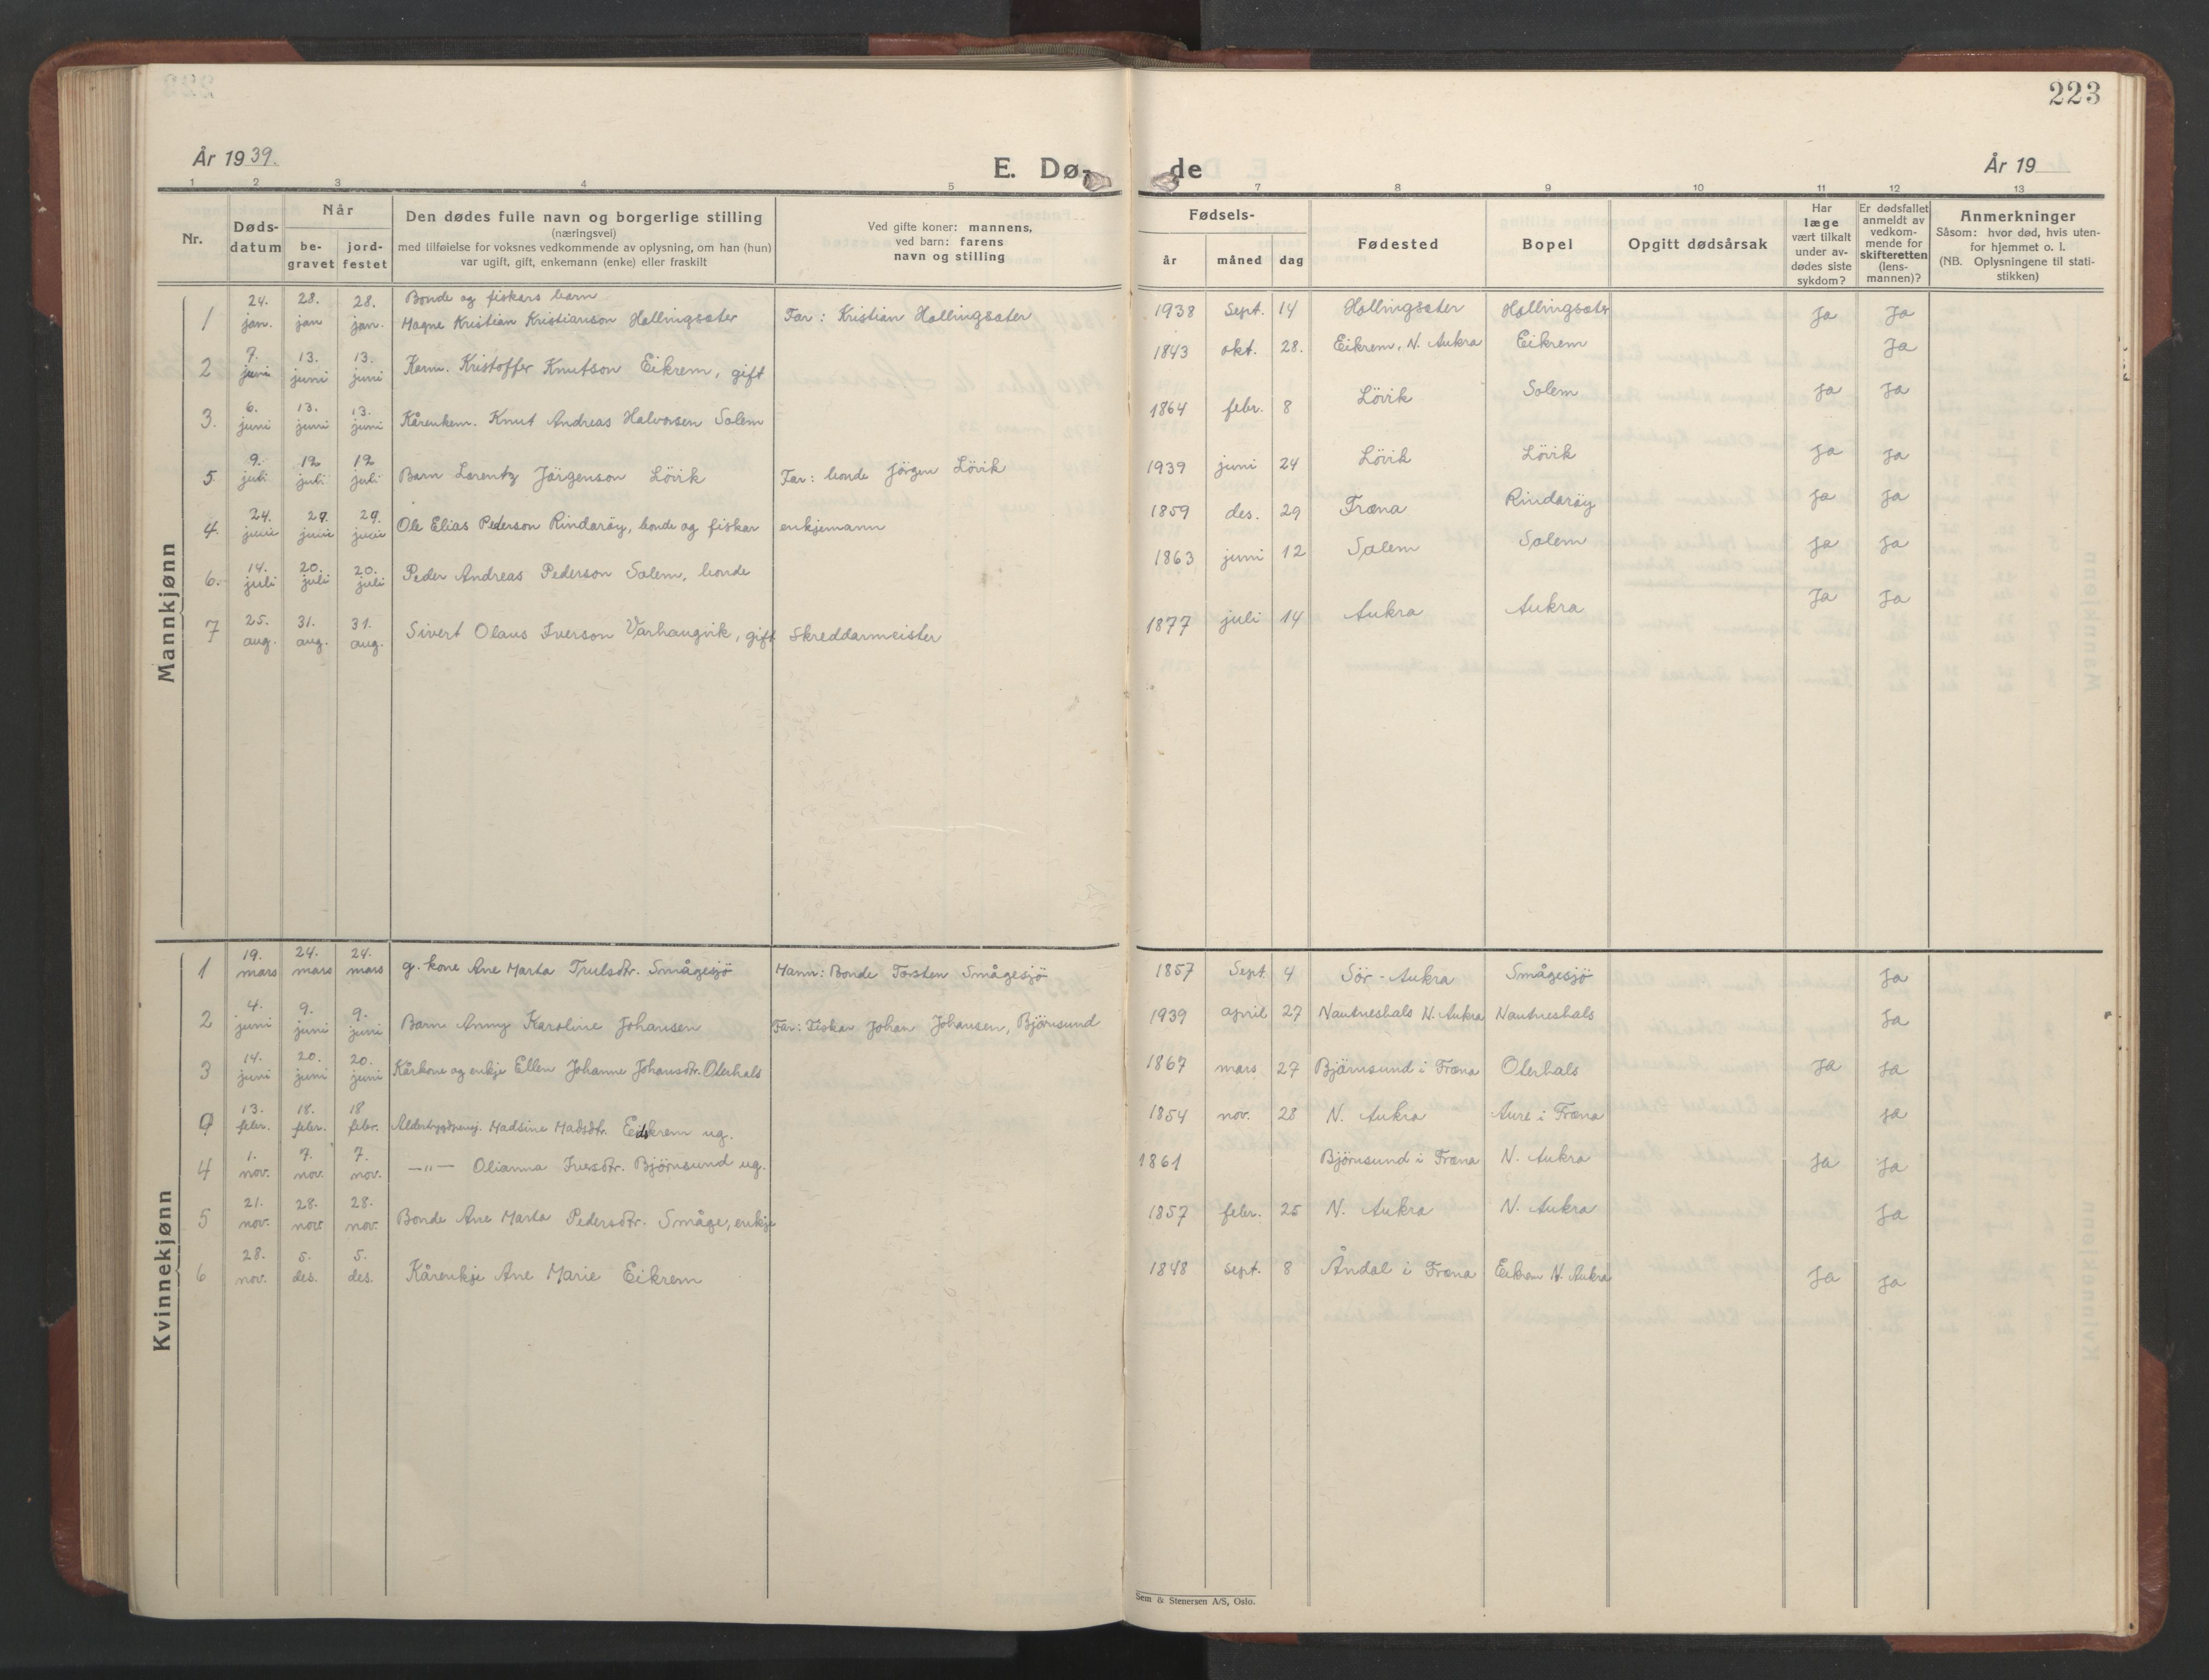 223
År 1939.
E. Dø-
de
År 19
1 2 3 4 5 7 8 9 10 11 12 13
Nr.
Døds-
datum
Når
be-
gravet
jord-
festet
Den dødes fulle navn og borgerlige stilling
(næringsvei)
med tilføielse for voksnes vedkommende av oplysning, om han (hun)
var ugift, gift, enkemann (enke) eller fraskilt
Ved gifte koner: mannens,
ved barn: farens
navn og stilling
Fødsels-
år måned dag
Fødested
Bopel
Opgitt dødsårsak
Har
læge
vært tilkalt
under av-
dødes siste
sykdom?
Er dødsfallet
anmeldt av
vedkom-
mende for
skifteretten
(lens-
mannen)?
Anmerkninger
Såsom: hvor død, hvis uten-
for hjemmet o. l.
(NB. Oplysningene til stati-
stikken)
Mannkjønn
24. 28. 28. Bonde og fiskars barn
1 jan. jan jan. Magne Kristian Kristianson Hollingsæter Far: Kristian Hollingsæter 1938 Sept. 14 Hollingsæter Hollingsæter Ja Ja
7. 13. 13.
2 juni juni juni Kårm. Kristoffer Knutson Eikrem, gift 1843 okt. 28. Eikrem, N. Aukra Eikrem Ja
6. 13. 13.
3. juni juni juni Kårenkem. Knut Andreas Halvorsen Solem 1864 febr. 8 Lövik Solem Ja Ja
9. 12 12
5 juli juli juli Barn Lorentz Jörgenson Lövik Far: bonde Jörgen Lövik 1939 juni 24 Lövik Lövik Ja Ja
24. 29. 29.
4. juni juni juni Ole Elias Pederson Rindarøy, bonde og fiskar enkjemann 1859 des. 29 Fræna Rindarøy Ja Ja
14. 20. 20.
6. juli juli juli Peder Andreas Pederson Solem, bonde 1863 juni 12 Solem Solem Ja Ja
25. 31. 31.
7 aug. aug. aug. Sivert Olaus Iverson Varhaugvik, gift Skreddarmeister 1877 juli 14 Aukra Aukra Ja Ja
Kvinnekjønn
19. 24. 24.
1 mars mars mars g. kone Ane Marta Trulsdtr. Smågesjö Mann: Bonde Torsten Smågesjö 1857 Sept. 4 Sör-Aukra Smågesjö Ja
4. 9. 9.
2 juni juni juni Barn Anny Karoline Johansen Far: Fiskar Johan Johansen, Björnsund 1939 april 27 Nautneshals N. Aukra Nautneshals Ja
14. 20. 20.
3 juni juni juni Kårkone og enkje Ellen Johanne Johansdtr. Oterhals 1867 mars 27 Björnsund i Fræna Oterhals Ja Ja
13. 18. 18
febr. febr. febr. Madsine Madsdtr. ug. 1854 nov. 28 N. Aukra Aure i Fræna Ja
1. 7. 7.
4 nov. nov. nov. —"— Olianna Iversdtr. Björnsund ug. 1861 Björnsund i Fræna N. Aukra Ja Ja
21. 28. 28.
5 nov. nov. nov. Bonde Ane Marta Pedersdtr. Småge, enkje 1857 febr. 25 N. Aukra N. Aukra Ja
28. 5. 5.
6 nov. des. des. Kårenkje Ane Marie Eikrem 1848 sept. 8 Åndal i Fræna Eikrem N. Aukra Ja Ja
Sem & Stenersen A/S, Oslo.